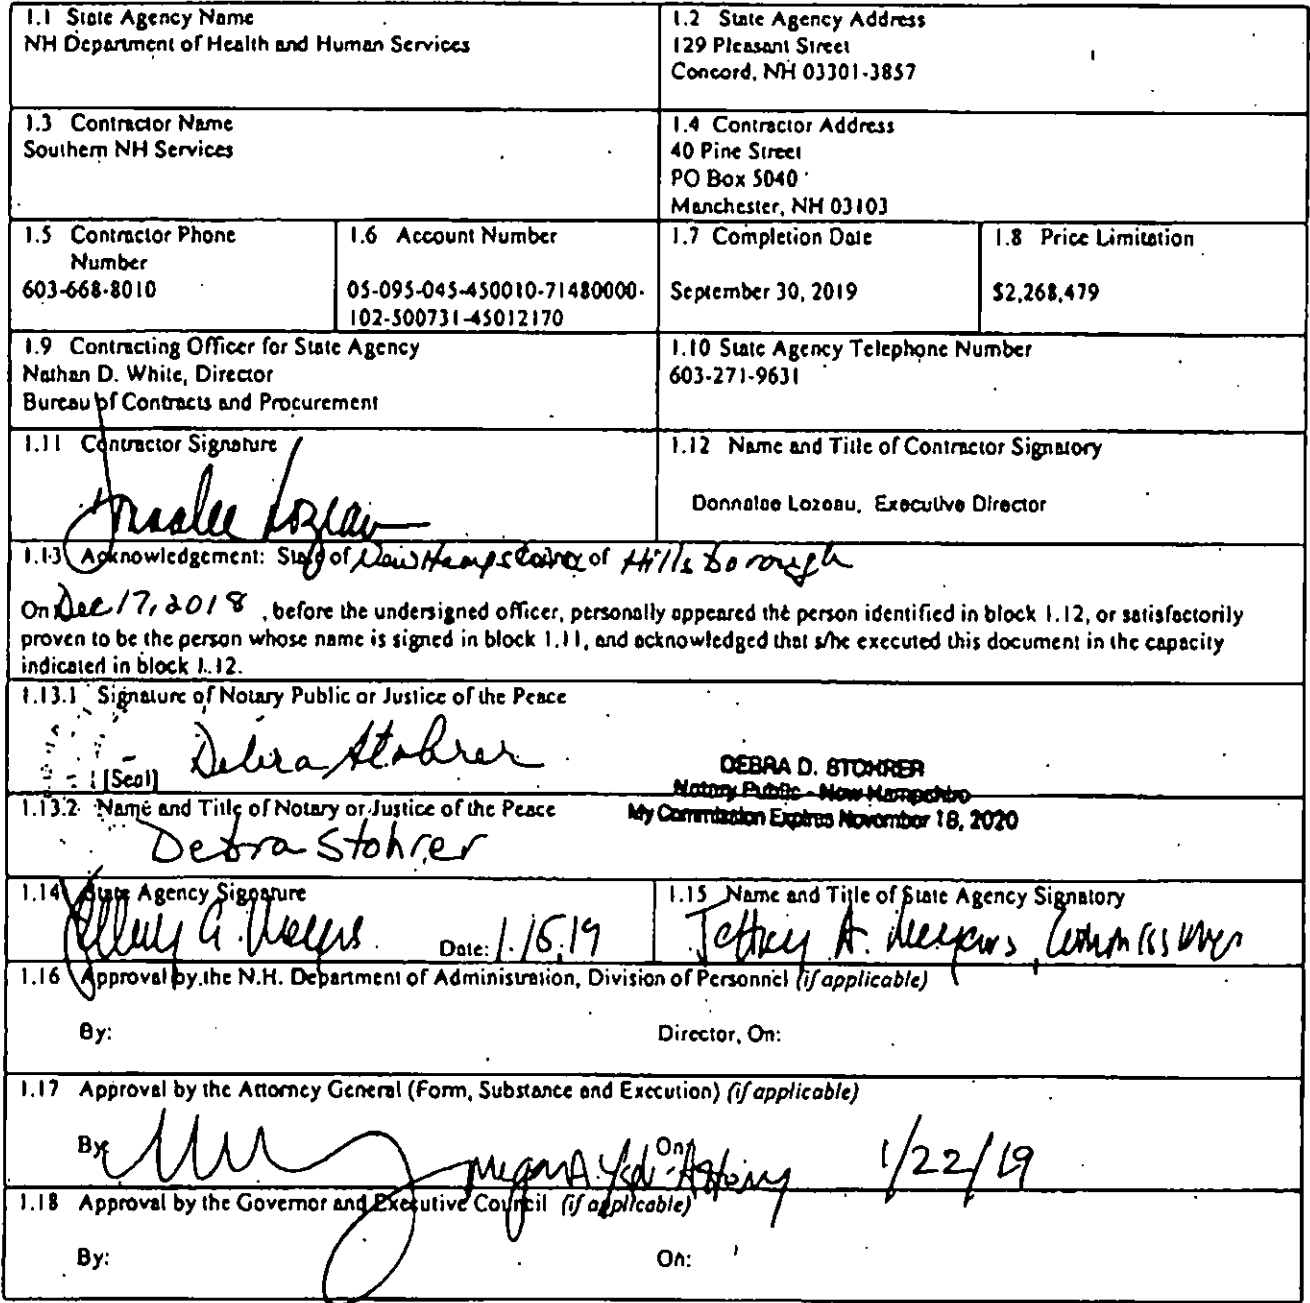 1.1 State Agency Name
NH Department of Health and Human Services
1.2 State Agency Address
129 Pleasant Street
Concord, NH 03301-3857
1.3 Contractor Name
Southern NH Services
1.4 Contractor Address
40 Pine Street
PO Box 5040
Manchester, NH 03103
1.5 Contractor Phone
Number
603-668-8010
1.6 Account Number
05-095-045-450010-71480000-
102-500731-45012170
1.7 Completion Date
September 30, 2019
1.8 Price Limitation
$2,268,479
1.9 Contracting Officer for State Agency
Nathan D. White, Director
Bureau of Contracts and Procurement
1.10 State Agency Telephone Number
603-271-9631
1.11 Contractor Signature
Donnalee Lozeau
1.12 Name and Title of Contractor Signatory
Donnalee Lozeau, Executive Director
1.13 Acknowledgement: State of New Hampshire of Hillsborough
On Dec 17, 2018, before the undersigned officer, personally appeared the person identified in block 1.12, or satisfactorily
proven to be the person whose name is signed in block 1.11, and acknowledged that s/he executed this document in the capacity
indicated in block 1.12.
1.13.1 Signature of Notary Public or Justice of the Peace
Debra Stohrer
[Seal]
DEBRA D. STOHRER
Notary Public - New Hampshire
My Commission Expires November 18, 2020
1.13.2 Name and Title of Notary or Justice of the Peace
Debra Stohrer
1.14 State Agency Signature
Jeffrey A. Meyers Date: 1.15.19
1.15 Name and Title of State Agency Signatory
Jeffrey A. Meyers, Commissioner
1.16 Approval by the N.H. Department of Administration, Division of Personnel (if applicable)
By: Director, On:
1.17 Approval by the Attorney General (Form, Substance and Execution) (if applicable)
By: On: 1/22/19
1.18 Approval by the Governor and Executive Council (if applicable)
By: On: